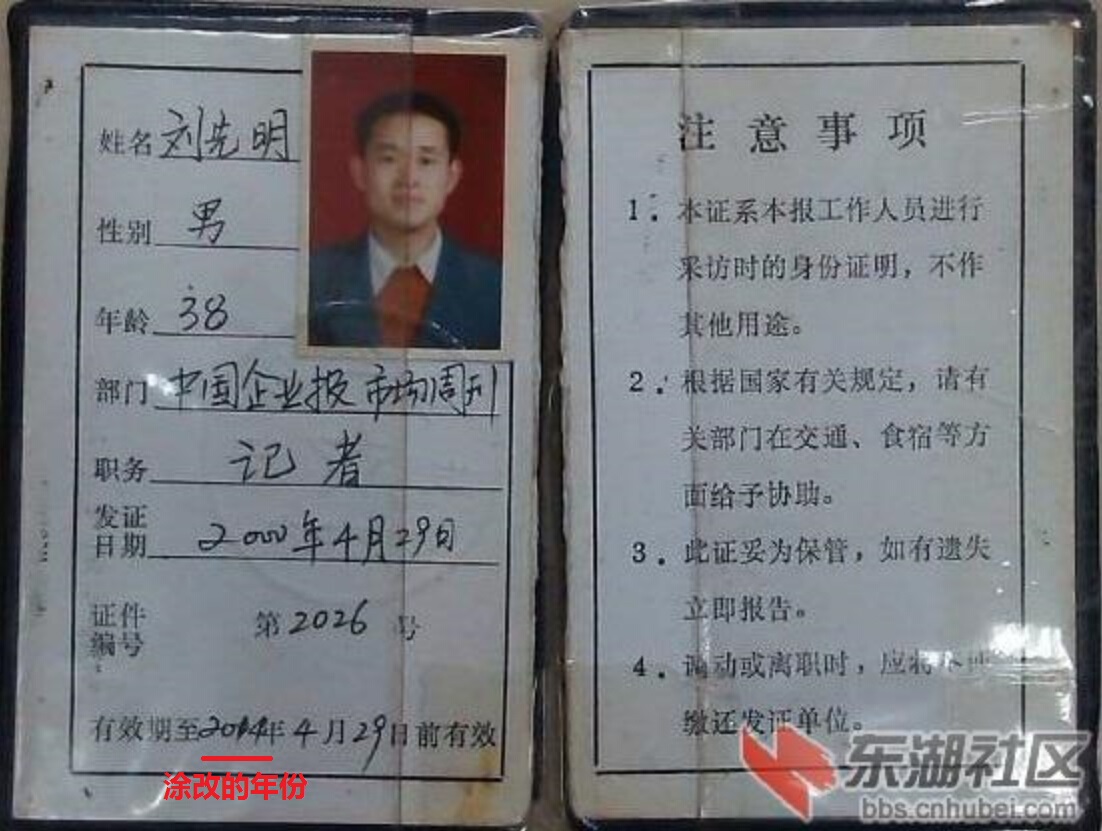 姓名 刘先明
性别 男
年龄 38
部门 中国企业报市场周刊
职务 记者
发证
日期 2000年4月29日
证件
编号: 第2026号
有效期至2014年4月29日前有效
涂改的年份
注意事项
1.本证系本报工作人员进行
采访时的身份证明，不作
其他用途。
2.根据国家有关规定，请有
关部门在交通、食宿等方
面给予协助。
3.此证妥为保管，如有遗失
立即报告。
4.调动或离职时，应将
缴还发证单位。
东湖社区
bbs.cnhubei.com